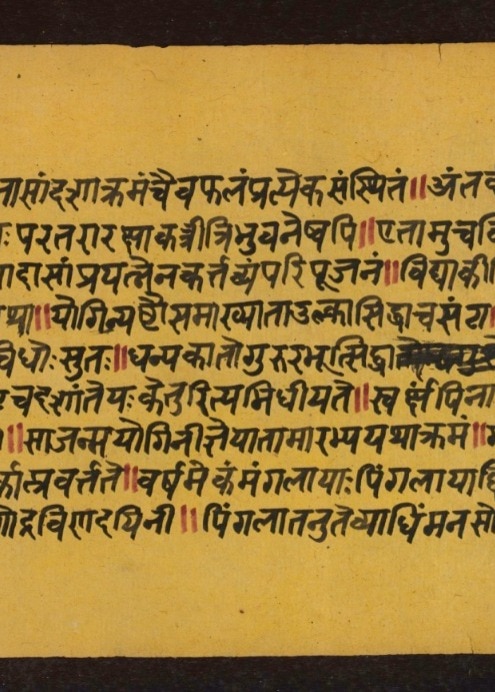 नासांदशाक्रमंचैवफलंप्रत्येकसंस्थितं॥अंतव
ः परतरारक्षाकर्त्रीत्रिभुवनेष्वपि॥एतामुच्च
ादासांप्रयत्नेनकर्त्तव्यंपरिपूजनं॥विद्याकी
था॥योगिन्यष्टौसमाख्याताउल्कासिद्धाचसंटा
विधोःसुतः॥धन्यकातोगुरुरभूत्सिद्धा
चदशांतेयःकेतुरित्यभिधीयते॥स्व पिना
॥साजन्मयोगिनीज्ञेयातामारभ्ययथाक्रमं॥
प्रवर्त्तते॥वर्षमेकंमंगलायाःपिंगलायाद्वि
द्रविणदायिनी॥पिंगलातनुतेव्याधिंमनसो